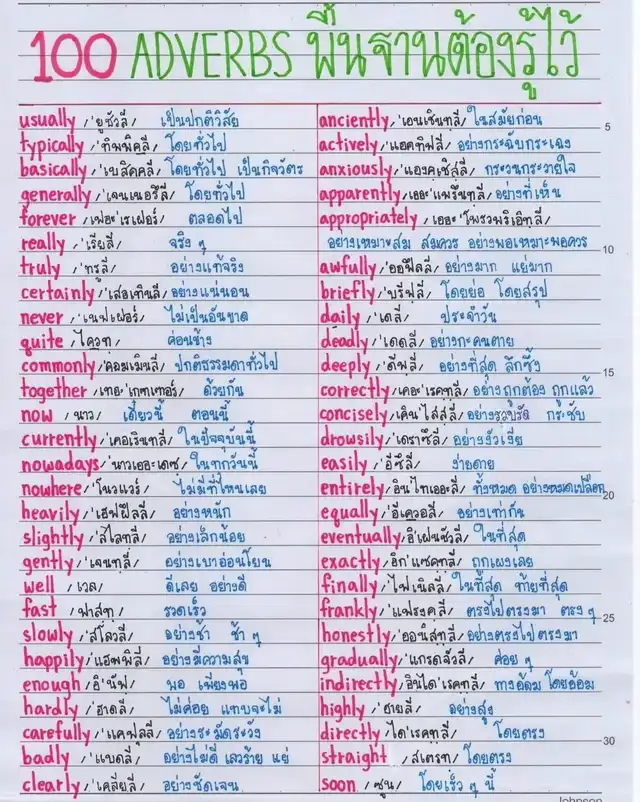 100 ADVERBS พื้นฐานต้องรู้ไว้
usually /'ยูชัวลี่/ เป็นปกติวิสัย
typically /'ทิพพิคลี่/ โดยทั่วไป
basically /'เบสิคคลี่/ โดยทั่วไป เป็นกิจวัตร
generally /'เจนเนอรัลี่/ โดยทั่วไป
forever /เฟอะ'เรเฟอร์/ ตลอดไป
really /'เรียลี่/ จริงๆ
truly /'ทรูลี่/ อย่างแท้จริง
certainly /'เส่อเทินลี่/ อย่างแน่นอน
never /'เนฟเฝอร์/ ไม่เป็นอันขาด
quite /ไควท/ ค่อนข้าง
commonly /'คอมเมินลี่/ ปกติธรรมดาทั่วไป
together /เทอะ'เกทเทอร์/ ด้วยกัน
now /นาว/ เดี๋ยวนี้ ตอนนี้
currently /'เคอเรินทลี่/ ในปัจจุบันนี้
nowadays /'นาวเออะเดซ/ ในทุกวันนี้
nowhere /'โนวแวร์/ ไม่มีที่ไหนเลย
heavily /'เฮฟฝิลลี่/ อย่างหนัก
slightly /'สไลทลี่/ อย่างเล็กน้อย
gently /'เจนทลี่/ อย่างเบาอ่อนโยน
well /เวล/ ดีเลย อย่างดี
fast /ฟาสท/ รวดเร็ว
slowly /'สโลวลี่/ อย่างช้า ช้าๆ
happily /'แฮพพิลี่/ อย่างมีความสุข
enough /อิ'นัฟ/ พอ เพียงพอ
hardly /'ฮาดลี่/ ไม่ค่อย แทบจะไม่
carefully /'แคฟลลี่/ อย่างระมัดระวัง
badly /'แบดลี่/ อย่างไม่ดี เลวร้าย แย่
clearly /'เคลียลี่/ อย่างชัดเจน
anciently /'เอนเชินทลี่/ ในสมัยก่อน
actively /'แอคทิฟลี่/ อย่างกระฉับกระเฉง
anxiously /'แองคเชิสลี่/ กระวนกระวายใจ
apparently /เออะ'แพรินทลี่/ อย่างที่เห็น
appropriately /เออะ'โพรวพริเอิทลี่/
อย่างเหมาะสม สมควร อย่างพอเหมาะพอควร
awfully /'ออฟิลลี่/ อย่างมาก แย่มาก
briefly /'บรีฟลี่/ โดยย่อ โดยสรุป
daily /'เดลี่/ ประจำวัน
deadly /'เดดลี่/ อย่างกะคนตาย
deeply /'ดีพลี่/ อย่างที่สุด ลึกซึ้ง
correctly /เคอะ'เรคทลี่/ อย่างถูกต้อง ถูกแล้ว
concisely /เคิน'ไสสลี่/ อย่างรวบรัด กระชับ
drowsily /'เดราซิลี่/ อย่างงัวเงีย
easily /'อีซิลี่/ ง่ายดาย
entirely /อิน'ไทเออะลี่/ ทั้งหมด อย่างหมดเปลือก
equally /'อีเควอลี่/ อย่างเท่ากัน
eventually /อิ'เฝนชัวลี่/ ในที่สุด
exactly /อิก'แซคทลี่/ ถูกเผงเลย
finally /'ไฟเนิลลี่/ ในที่สุด ท้ายที่สุด
frankly /'แฟรงคลี่/ ตรงไปตรงมา ตรงๆ
honestly /'ออนิสทลี่/ อย่างตรงไปตรงมา
gradually /'แกรดจัวลี่/ ค่อยๆ
indirectly /อินได'เรคทลี่/ ทางอ้อม โดยอ้อม
highly /'ฮายลี่/ อย่างสูง
directly /ได'เรคทลี่/ โดยตรง
straight /สเตรท/ โดยตรง
soon /ซูน/ โดยเร็วๆ นี้
5
10
15
20
25
30